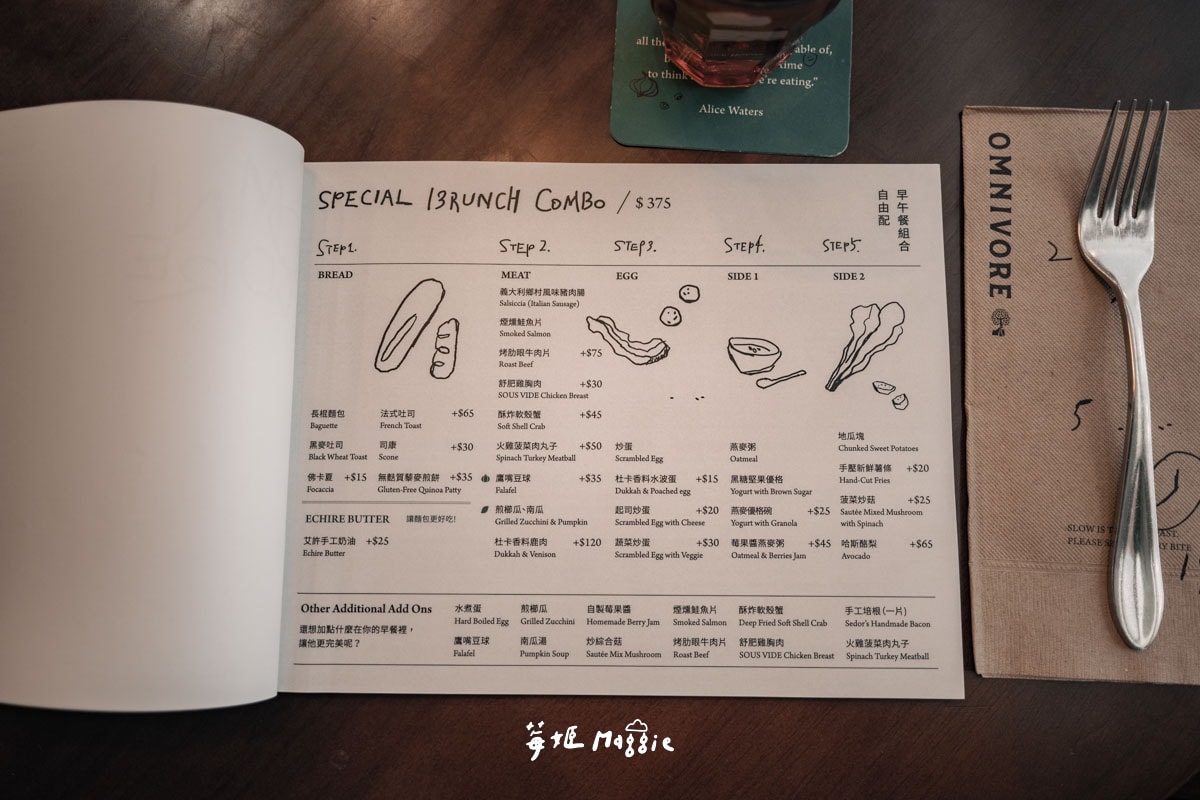 all the able of,
to think e're eating."
Alice Waters
SPECIAL BRUNCH COMBO / $375
早午餐組合
自由配
STEP1.
BREAD
長棍麵包
Baguette
法式吐司 +$65
French Toast
黑麥吐司
Black Wheat Toast
司康 +$30
Scone
佛卡夏 +$15
Focaccia
無麩質藜麥煎餅 +$35
Gluten-Free Quinoa Patty
ECHIRE BUTTER 讓麵包更好吃!
艾許手工奶油 +$25
Echire Butter
STEP2.
MEAT
義大利鄉村風味豬肉腸
Salsiccia (Italian Sausage)
煙燻鮭魚片
Smoked Salmon
烤肋眼牛肉片 +$75
Roast Beef
舒肥雞胸肉 +$30
SOUS VIDE Chicken Breast
酥炸軟殼蟹 +$45
Soft Shell Crab
火雞菠菜肉丸子 +$50
Spinach Turkey Meatball
鷹嘴豆球 +$35
Falafel
煎櫛瓜、南瓜
Grilled Zucchini & Pumpkin
杜卡香料鹿肉 +$120
Dukkah & Venison
STEP3.
EGG
炒蛋
Scrambled Egg
杜卡香料水波蛋 +$15
Dukkah & Poached egg
起司炒蛋 +$20
Scrambled Egg with Cheese
蔬菜炒蛋 +$30
Scrambled Egg with Veggie
STEP4.
SIDE 1
燕麥粥
Oatmeal
黑糖堅果優格
Yogurt with Brown Sugar
燕麥優格碗 +$25
Yogurt with Granola
莓果醬燕麥粥 +$45
Oatmeal & Berries Jam
STEP5.
SIDE 2
地瓜塊
Chunked Sweet Potatoes
手壓新鮮薯條 +$20
Hand-Cut Fries
菠菜炒菇 +$25
Sautée Mixed Mushroom
with Spinach
哈斯酪梨 +$65
Avocado
Other Additional Add Ons
還想加點什麼在你的早餐裡，
讓他更完美呢？
水煮蛋
Hard Boiled Egg
煎櫛瓜
Grilled Zucchini
自製莓果醬
Homemade Berry Jam
煙燻鮭魚片
Smoked Salmon
酥炸軟殼蟹
Deep Fried Soft Shell Crab
手工培根(一片)
Sedor's Handmade Bacon
鷹嘴豆球
Falafel
南瓜湯
Pumpkin Soup
炒綜合菇
Sautée Mix Mushroom
烤肋眼牛肉片
Roast Beef
舒肥雞胸肉
SOUS VIDE Chicken Breast
火雞菠菜肉丸子
Spinach Turkey Meatball
OMNIVORE
2
5
SLOW IS
PLEASE BITE
莓姬 Maggie